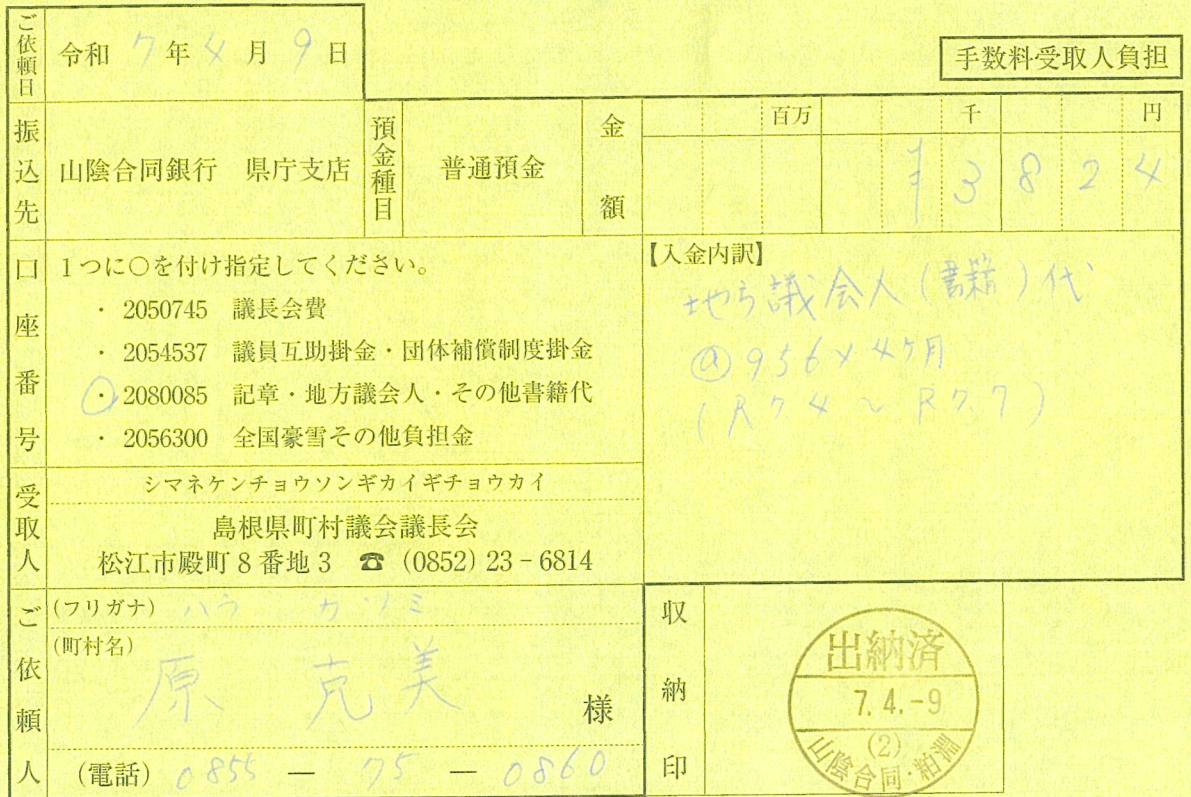 ご依頼日 令和 7年4月9日
手数料受取人負担
振込先 山陰合同銀行 県庁支店 預金種目 普通預金 金額 百万 千 円
¥3824
口座番号 1つに○を付け指定してください。
・ 2050745 議長会費
・ 2054537 議員互助掛金・団体補償制度掛金
○・ 2080085 記章・地方議会人・その他書籍代
・ 2056300 全国豪雪その他負担金
【入金内訳】
地方議会人(書籍)代
@956×4ヶ月
(R7.4～R7.7)
受取人 シマネケンチョウソンギカイギチョウカイ
島根県町村議会議長会
松江市殿町8番地3 ☎ (0852) 23-6814
ご依頼人 (フリガナ) ハラ カツミ
(町村名)
原 克美 様
(電話) 0855 — 75 — 0860
収納印
出納済
7.4.-9
(2)
山陰合同・粕淵